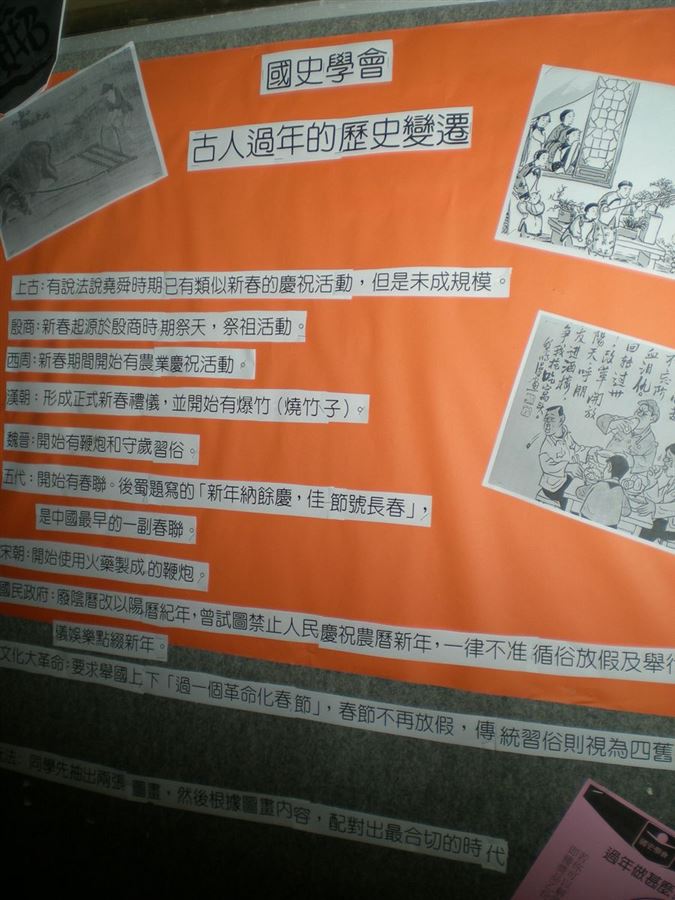 國史學會
古人過年的歷史變遷
上古：有說法說堯舜時期已有類似新春的慶祝活動，但是未成規模。
殷商：新春起源於殷商時期祭天，祭祖活動。
西周：新春期間開始有農業慶祝活動。
漢朝：形成正式新春禮儀，並開始有爆竹（燒竹子）。
魏晉：開始有鞭炮和守歲習俗。
五代：開始有春聯。後蜀題寫的「新年納餘慶，佳節號長春」，
是中國最早的一副春聯。
宋朝：開始使用火藥製成的鞭炮。
國民政府：廢陰曆改以陽曆紀年，曾試圖禁止人民慶祝農曆新年，一律不准循俗放假及舉行
儀娛樂點綴新年。
文化大革命：要求舉國上下「過一個革命化春節」，春節不再放假，傳統習俗則視為四舊
法：同學先抽出兩張圖畫，然後根據圖畫內容，配對出最合切的時代
過年做甚麼